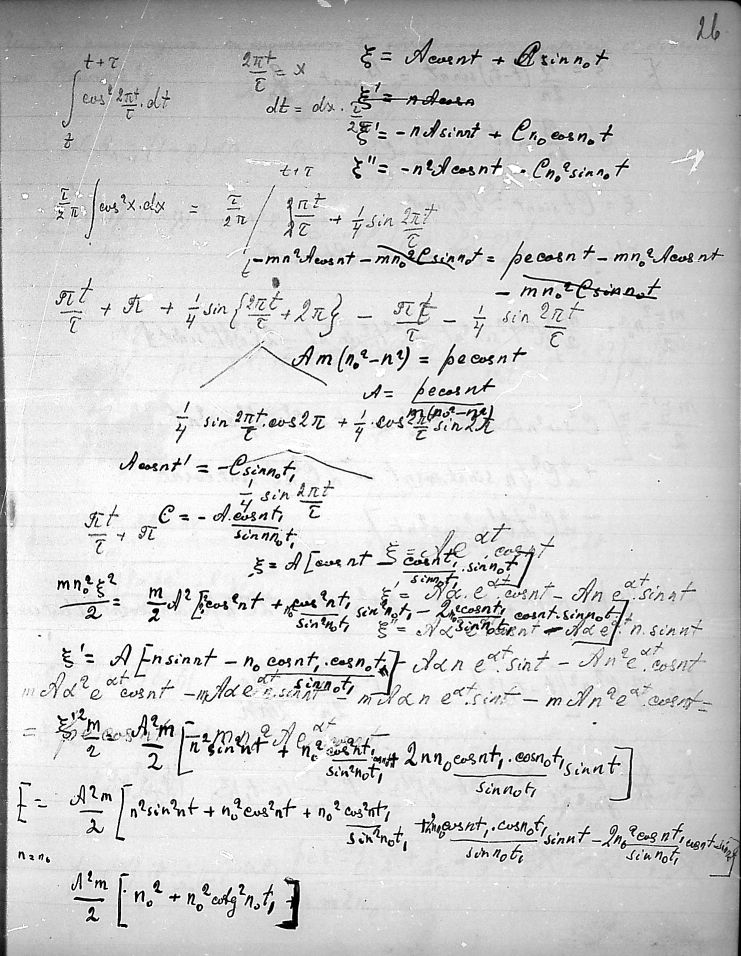 26
t+τ
∫ cos² 2πt/τ . dt
t
2πt/τ = x
dt = dx . τ/2π
ξ = A cosnt + C sinn₀t
ξ' = - nA cosn
ξ' = -nA sinnt + Cn₀ cosn₀t
ξ'' = -n²A cosnt - Cn₀² sinn₀t
τ/2π ∫ cos²x.dx = τ/2π / 2πt/2τ + 1/4 sin 2πt/τ
t+τ
t
-mn²A cosnt - mn₀²C sinn₀t = pe cosnt - mn₀²A cosnt
- mn₀²C sinn₀t
πt/τ + π + 1/4 sin {2πt/τ + 2π} - πt/τ - 1/4 sin 2πt/τ
Am(n₀²-n²) = pe cosnt
A = pe cosnt / m(n₀²-n²)
1/4 sin 2πt/τ . cos2π + 1/4 . cos 2πt/τ sin2π
A cosnt' = -C sinn₀t₁
1/4 sin 2πt/τ
πt/τ + π
C = - A.cosnt₁ / sinn₀t₁
ξ = A e^αt cosnt
ξ = A [cosnt - cosnt₁/sinn₀t₁ . sinn₀t]
ξ' = Aα.e^αt.cosnt - An e^αt.sinnt
mn₀²ξ²/2 = m/2 A² [n₀² cos²nt + n₀² cos²nt₁/sin²n₀t₁ sin²n₀t₁ - 2n₀² cosnt₁/sinn₀t₁ cosnt.sinn₀t]
ξ' = A [-n sinnt - n₀ cosnt₁.cosn₀t/sinn₀t₁]
- Aαn e^αt.sint - An²e^αt.cosnt
mAα²e^αt cosnt - mAαe^αt n.sinnt - mAαn e^αt.sint - mAn²e^αt.cosnt =
ξ'²m/2 = A²m/2 [n² sin²nt + n₀² cos²nt₁/sin²n₀t₁ + 2nn₀ cosnt₁.cosn₀t₁/sinn₀t₁ sinnt]
E = A²m/2 [n²sin²nt + n₀²cos²nt + n₀² cos²nt₁/sin²n₀t₁ + 2nn₀ cosnt₁.cosn₀t₁/sinn₀t₁ sinnt - 2n₀² cosnt₁/sinn₀t₁ cosnt.sinn₀t]
n=n₀
A²m/2 [n₀² + n₀² cotg²n₀t₁ +]